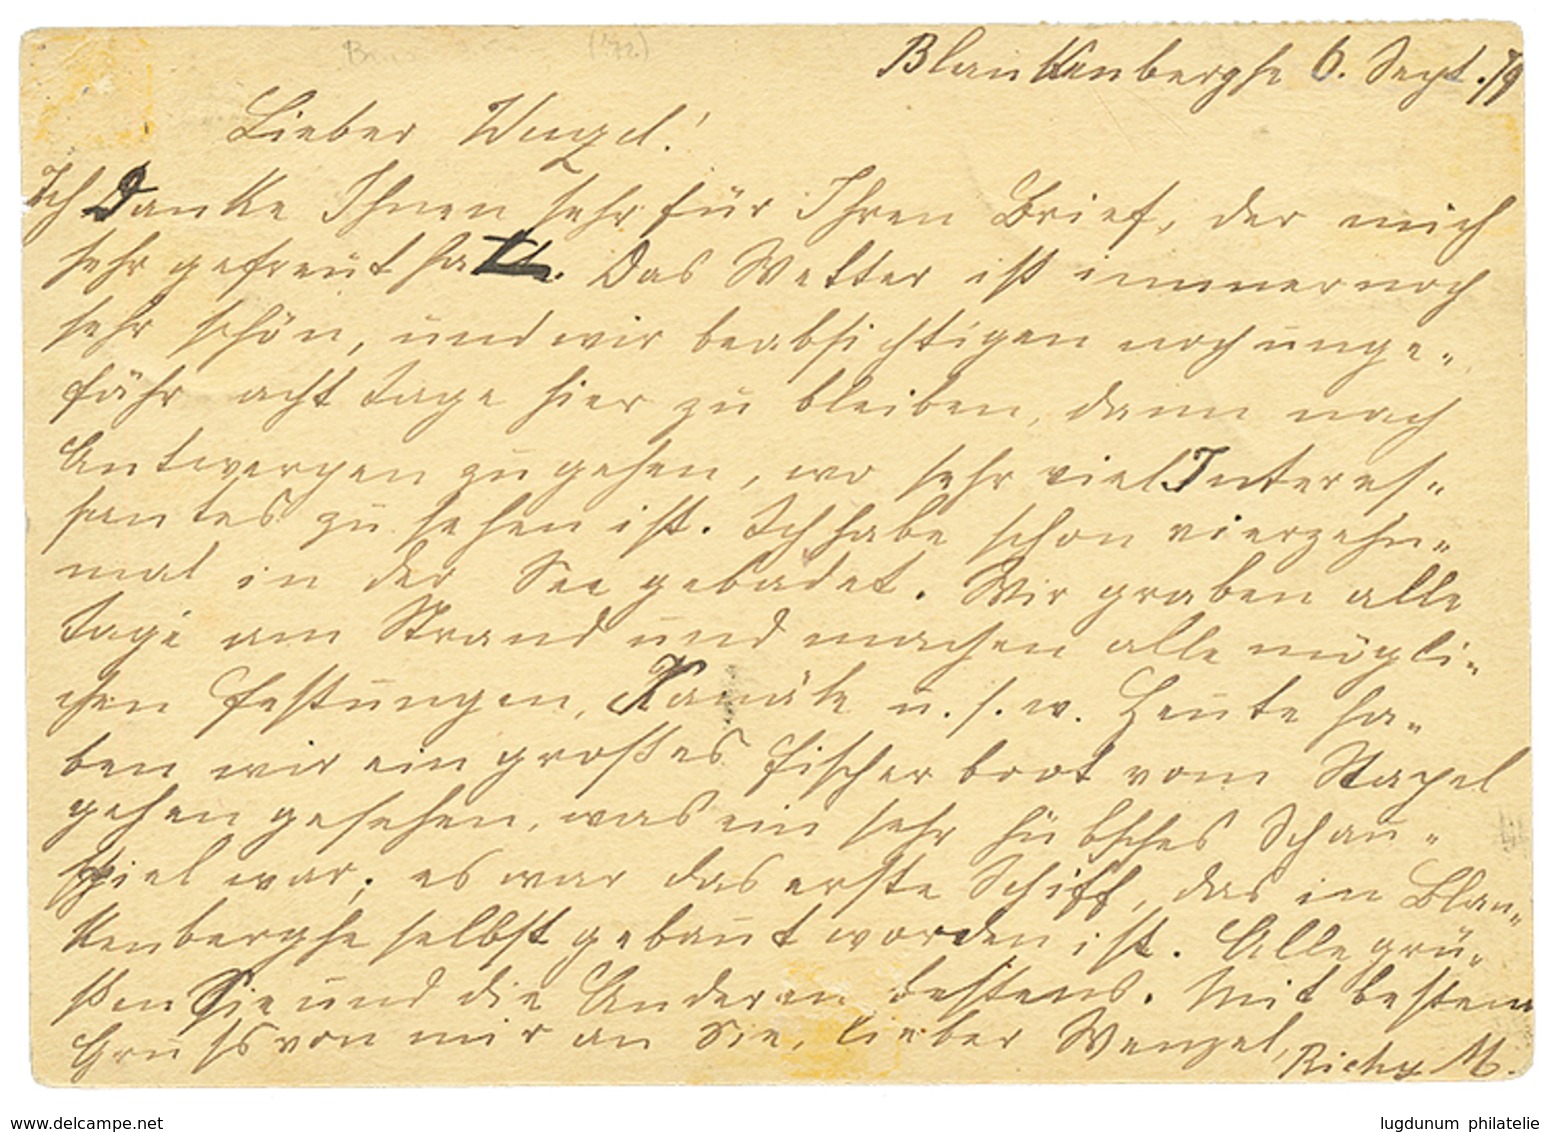 (172.)
Blankenberghe 6. Sept. 79
Lieber Wenzel!
Ich Danke Ihnen sehr für Ihren Brief, der mich
sehr gefreut hat. Das Wetter ist immer noch
sehr schön, und wir beabsichtigen noch unge-
fähr acht Tage hier zu bleiben, dann nach
Antwerpen zu gehen, wo sehr viel Interes-
santes zu sehen ist. Ich habe schon vierzehn-
mal in der See gebadet. Wir graben alle
Tage am Strand und machen alle mögli-
chen Festungen, Kanäle u. s. w. Heute ha-
ben wir ein großes Fischerboot vom Stapel
gehen gesehen, was ein sehr hübsches Schau-
spiel war; es war das erste Schiff, das in Blan-
kenberghe selbst gebaut worden ist. Alle grü-
ßen Sie und die Anderen bestens. Mit bestem
Gruss von mir an Sie, lieber Wenzel, Richy M.
www.delcampe.net
lugdunum philatelie